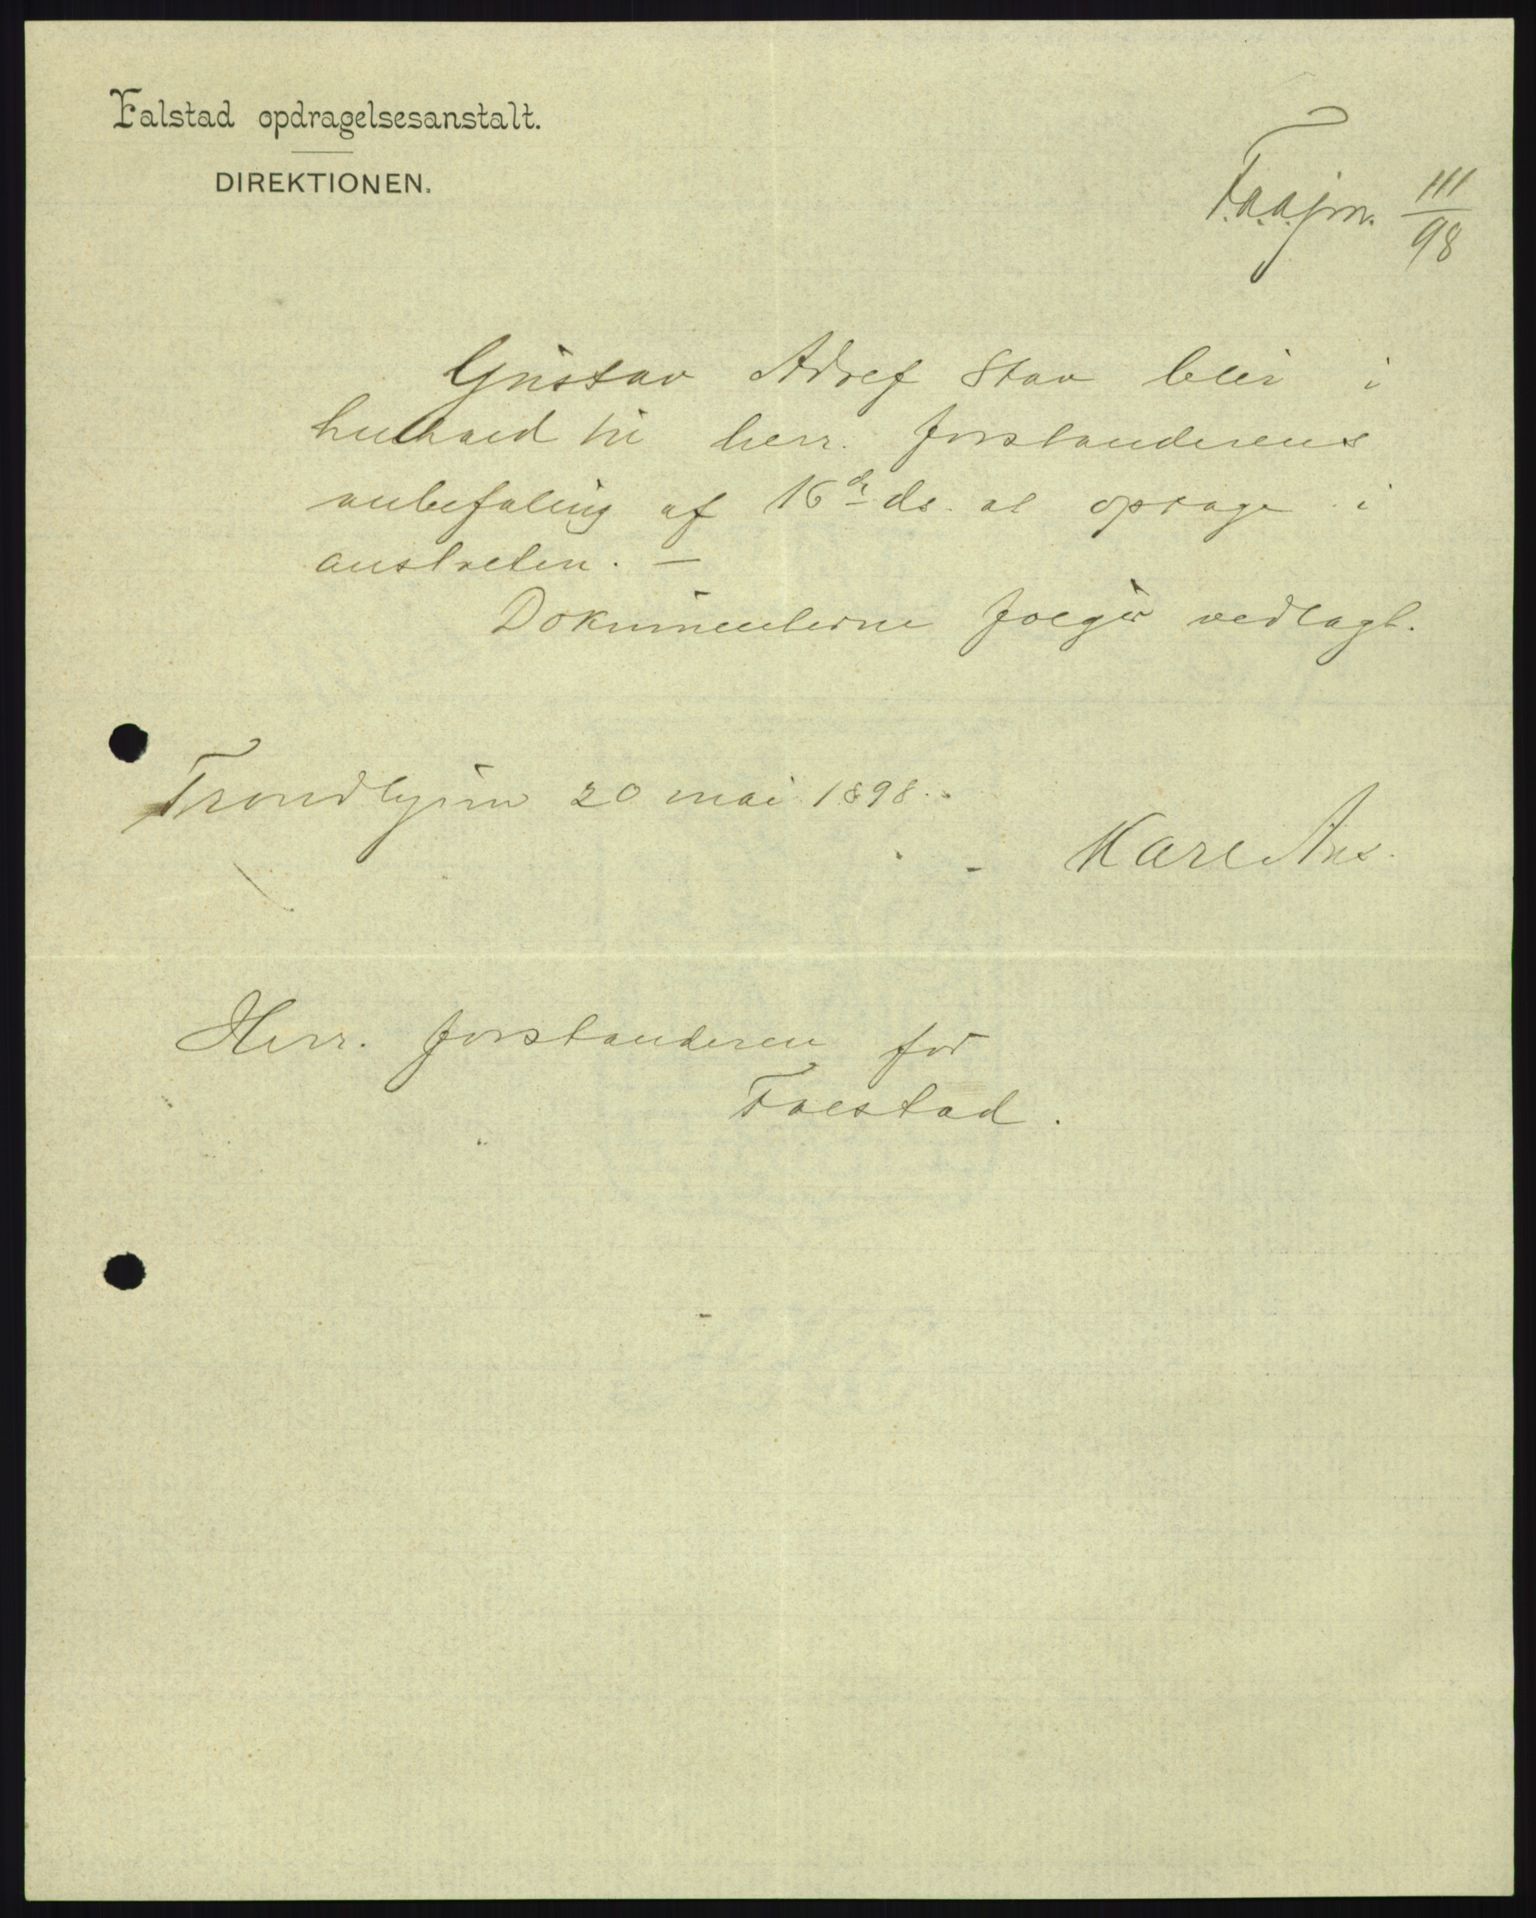 Falstad opdragelsesanstalt.
DIREKTIONEN.
F.a.a.jm. 111/98
Gustav Adolf Stav blir i
henhold til herr. forstanderens
anbefaling af 16de ds. at optage i
anstalten. —
Dokumenterne følger vedlagt.
Trondhjem 20 mai 1898.
Karl
Herr. forstanderen for
Falstad.